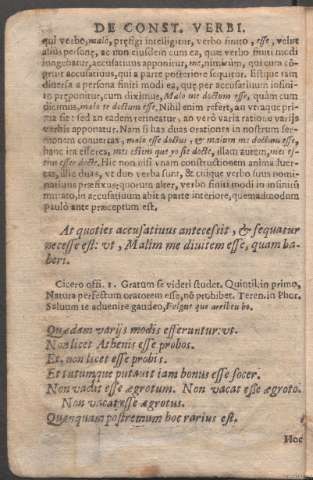 DE CONST. VERBI.
qui verbo, malo, præfigi intelligitur, verbo finito, esse, velut
alius personę, ac non eiusdem cum ea, quæ verbo finiti modi
iungebatur, accusatiuus apponitur, me, nimirum, qui cum cō-
gruit accusatiuus, qui a parte posteriore sequitur. Estque tam
diuersa a persona finiti modi ea, quę per accusatiuum infini-
to preponitur, cum dicimus, Malo me doctum esse, quàm cum
dicimus, malo te doctum esse. Nihil enim refert, an vtraque pri-
ma sit: sed an eadem retineatur, an verò varia ratione varijs
verbis apponatur. Nam si has duas orationes in nostrum ser-
monem conuertas, malo esse doctus, & malum me doctum esse,
hanc in esseres, illam autem,
Hic non nisi vnam constructionem animaduer-
tas, illic duas, vt duo verba sunt, & cuique verbo suus nomi-
natiuus præfixus: quorum alter, verbo finiti modi in infinitū
mutato, in accusatiuum abit a parte interiore, quemadmodum
paulò ante præceptum est,
At quoties accusatiuus antecesit, & sequatur
necesse est: vt, Malim me diuitem esse, quam ha-
beri.
Cicero offi. 1. Gratum se videri studet. Quintil. in primo,
Natura perfectum oratorem esse, nō prohibet. Teren. in Phor.
Saluum te aduenire gaudeo,
Quædam varijs modis efferuntur: vt.
Non licet Athenis esse probos.
Et, non licet esse probis.
Et tutumque putauit iam bonus esse socer.
Non vadis esse ægrotum. Non vacat esse ægroto.
Non vacat esse ægrotus.
Quanquam postremum hoc rarius est.
Hoc